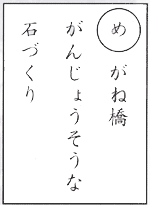 めがね橋
がんじょうそうな
石づくり